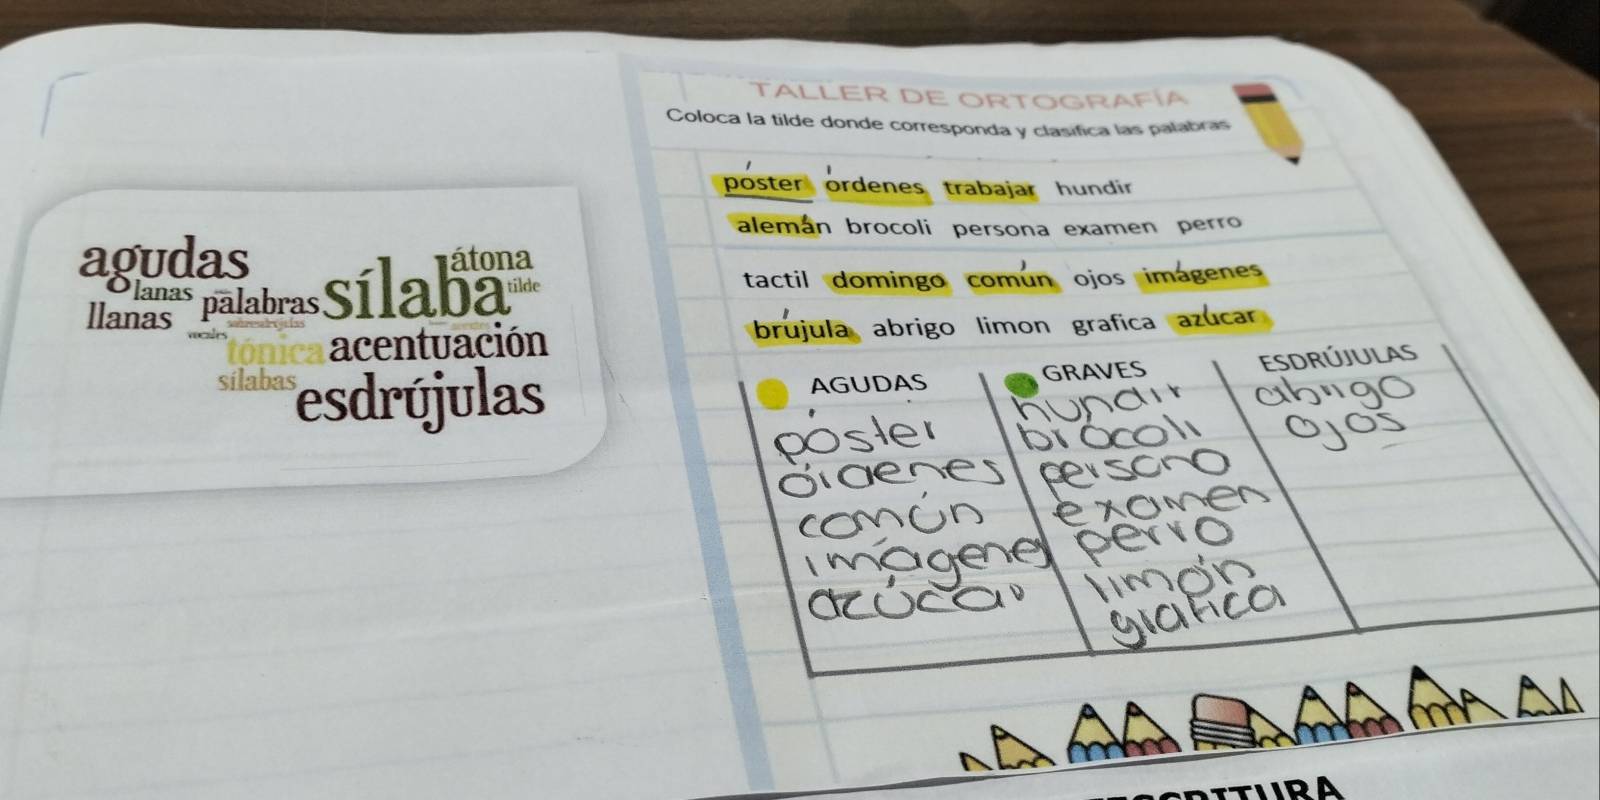 agudas
átona
lanas
palabras
sílaba
tilde
llanas
vocales
sobresdrújulas
tónica
acentuación
sílabas
esdrújulas
TALLER DE ORTOGRAFÍA
Coloca la tilde donde corresponda y clasifica las palabras
póster órdenes trabajar hundir
alemán brocoli persona examen perro
tactil domingo común ojos imágenes
brújula abrigo limon grafica azúcar
AGUDAS GRAVES ESDRÚJULAS
póster hundir abrigo
órdenes brócoli ojos
común persona
imágenes examen
azúcar perro
limón
grafica
ESCRITURA